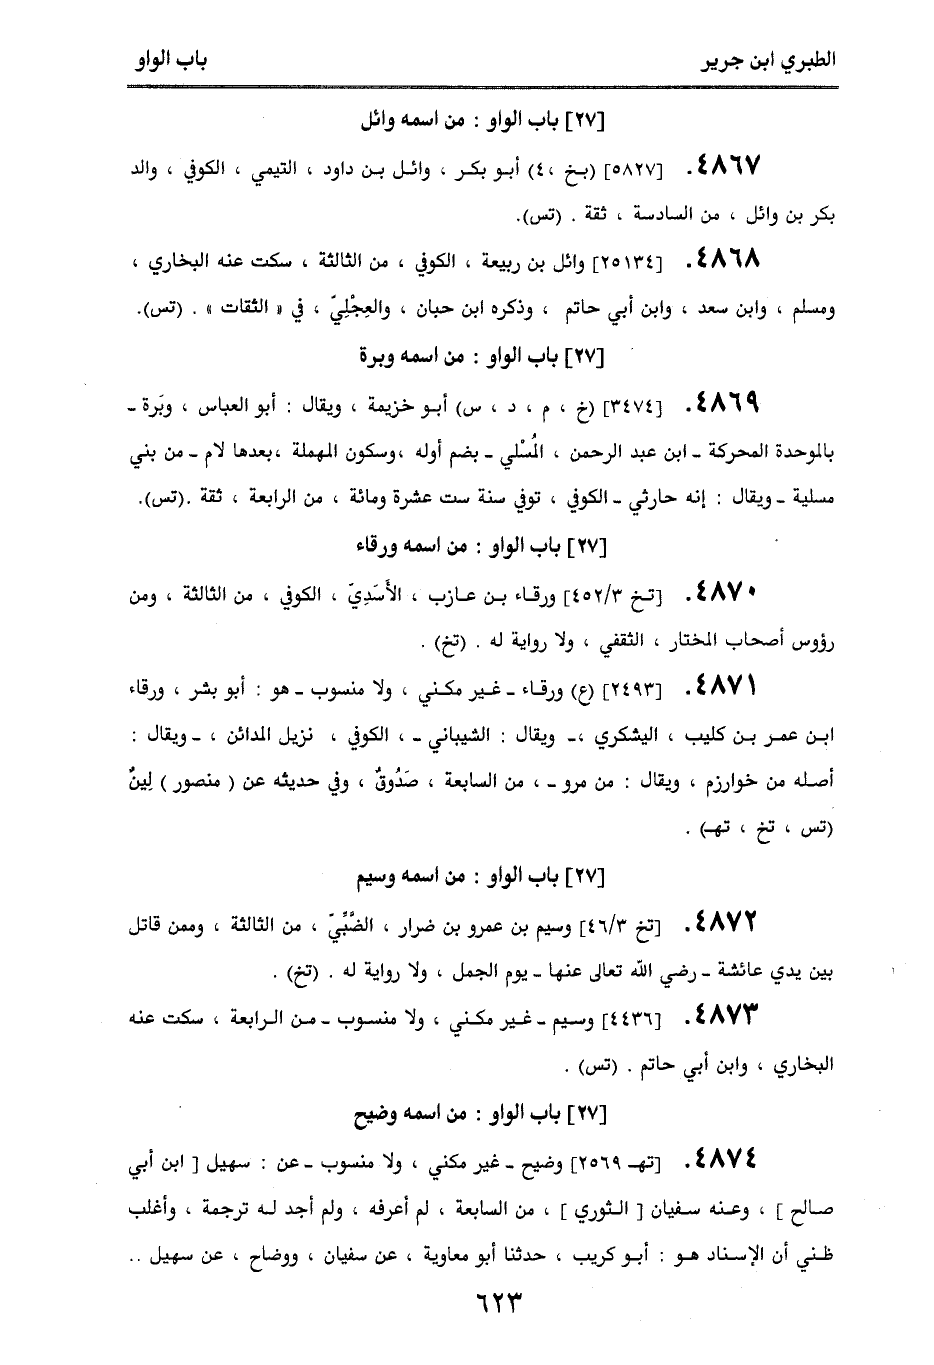 الطبري ابن جرير باب الواو
[٢٧] باب الواو : من اسمه وائل
٤٨٦٧. [٥٨٢٧] (بخ ،٤) أبو بكر ، وائل بن داود ، التيمي ، الكوفي ، والد
بكر بن وائل ، من السادسة ، ثقة . (تس).
٤٨٦٨. [٢٥١٣٤] وائل بن ربيعة ، الكوفي ، من الثالثة ، سكت عنه البخاري ،
ومسلم ، وابن سعد ، وابن أبي حاتم ، وذكره ابن حبان ، والعِجْلِيّ ، في « الثقات » . (تس).
[٢٧] باب الواو : من اسمه وبرة
٤٨٦٩. [٣٤٧٤] (خ ، م ، د ، س) أبو خزيمة ، ويقال : أبو العباس ، وبَرة ـ
بالموحدة المحركة ـ ابن عبد الرحمن ، المُسْلي ـ بضم أوله ،وسكون المهملة ،بعدها لام ـ من بني
مسلية ـ ويقال : إنه حارثي ـ الكوفي ، توفي سنة ست عشرة ومائة ، من الرابعة ، ثقة .(تس).
[٢٧] باب الواو : من اسمه ورقاء
٤٨٧٠. [تخ ٤٥٢/٣] ورقاء بن عازب ، الأَسَدِيّ ، الكوفي ، من الثالثة ، ومن
رؤوس أصحاب المختار ، الثقفي ، ولا رواية له . (تخ) .
٤٨٧١. [٢٤٩٣] (ع) ورقاء ـ غير مكني ، ولا منسوب ـ هو : أبو بشر ، ورقاء
ابن عمر بن كليب ، اليشكري ،ـ ويقال : الشيباني ـ ، الكوفي ، نزيل المدائن ، ـ ويقال :
أصله من خوارزم ، ويقال : من مرو ـ ، من السابعة ، صَدُوقٌ ، وفي حديثه عن ( منصور ) لِينٌ
(تس ، تخ ، تهـ) .
[٢٧] باب الواو : من اسمه وسيم
٤٨٧٢. [تخ ٤٦/٣] وسيم بن عمرو بن ضرار ، الضَّبِّيّ ، من الثالثة ، وممن قاتل
بين يدي عائشة ـ رضي الله تعالى عنها ـ يوم الجمل ، ولا رواية له . (تخ) .
٤٨٧٣. [٤٤٣٦] وسيم ـ غير مكني ، ولا منسوب ـ من الرابعة ، سكت عنه
البخاري ، وابن أبي حاتم . (تس) .
[٢٧] باب الواو : من اسمه وضيح
٤٨٧٤. [تهـ ٢٥٦٩] وضيح ـ غير مكني ، ولا منسوب ـ عن : سهيل [ ابن أبي
صالح ] ، وعنه سفيان [ الثوري ] ، من السابعة ، لم أعرفه ، ولم أجد له ترجمة ، وأغلب
ظني أن الإسناد هو : أبو كريب ، حدثنا أبو معاوية ، عن سفيان ، ووضاح ، عن سهيل ..
٦٢٣